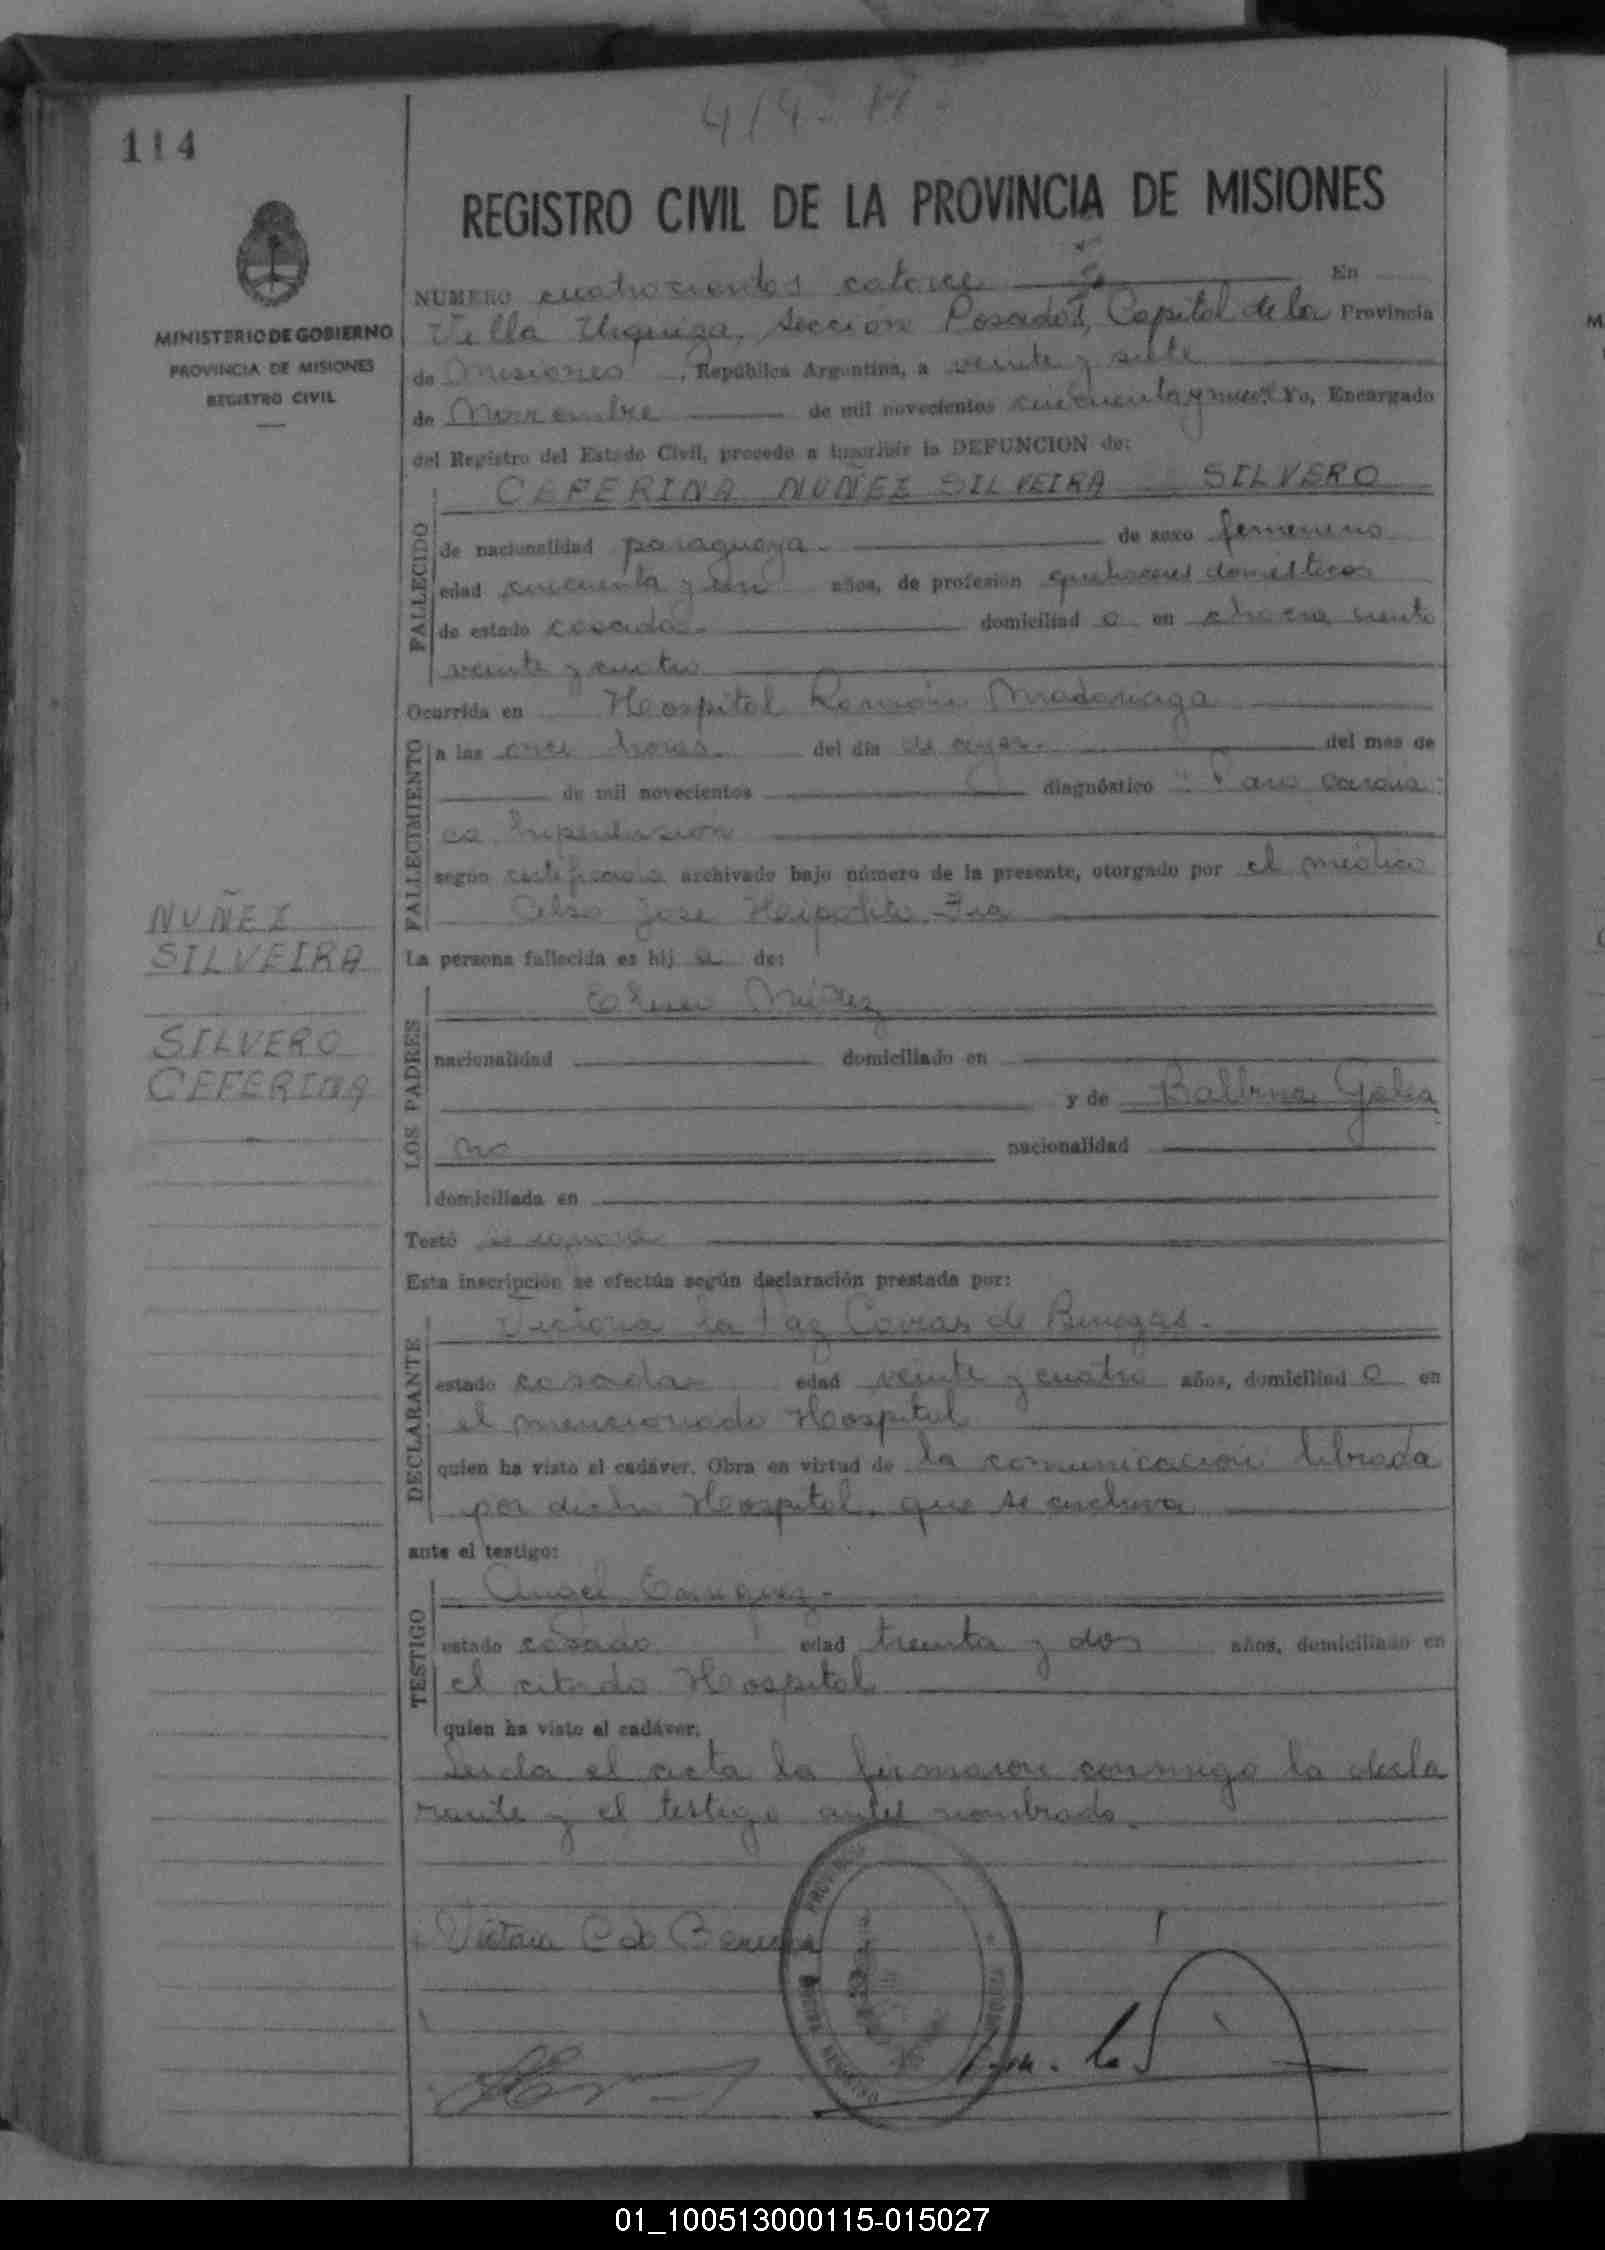 414. H.
114
REGISTRO CIVIL DE LA PROVINCIA DE MISIONES
MINISTERIO DE GOBIERNO
PROVINCIA DE MISIONES
REGISTRO CIVIL
NUMERO cuatrocientos catorce En
Villa Urquiza, sección Posadas, Capital de la Provincia
de Misiones, República Argentina, a veinte y siete
de Noviembre de mil novecientos cincuenta y nueve Yo, Encargado
del Registro del Estado Civil, procedo a inscribir la DEFUNCION de:
CEFERINA NUÑEZ SILVEIRA SILVERO
FALLECIDO
de nacionalidad paraguaya. de sexo femenino
edad cincuenta y un años, de profesión quehaceres domésticos
de estado casada. domiciliad a en chacra ciento
veinte y cuatro
Ocurrida en Hospital Ramón Madariaga
FALLECIMIENTO
a las once horas. del día de ayer. del mes de
de mil novecientos diagnóstico "Paro cardía
co hipertensión
según certificado archivado bajo número de la presente, otorgado por el médico
Celso José Hipólito
NUÑEZ
SILVEIRA
SILVERO
CEFERINA
La persona fallecida es hij a de:
LOS PADRES
Eliseo Núñez
nacionalidad domiciliado en
y de Balbina Galea
no nacionalidad
domiciliada en
Testó se ignora
Esta inscripción se efectúa según declaración prestada por:
DECLARANTE
Victoria la Paz Cowas de Benegas.
estado casada edad veinte y cuatro años, domiciliad a en
el mencionado Hospital
quien ha visto el cadáver. Obra en virtud de la comunicación librada
por dicho Hospital, que se archiva
ante el testigo:
TESTIGO
Angel
estado casado edad treinta y dos años, domiciliado en
el citado Hospital
quien ha visto el cadáver.
Leída el acta la firmaron conmigo la decla
rante y el testigo antes nombrado.
Victoria C de Benegas
01_100513000115-015027